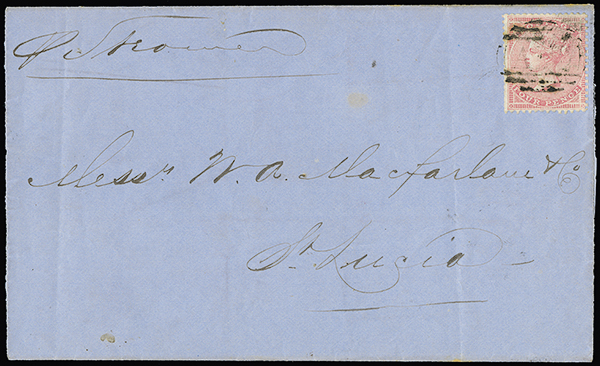 FOUR PENCE
Messrs. W. A. Macfarlane & Co
St. Lucia